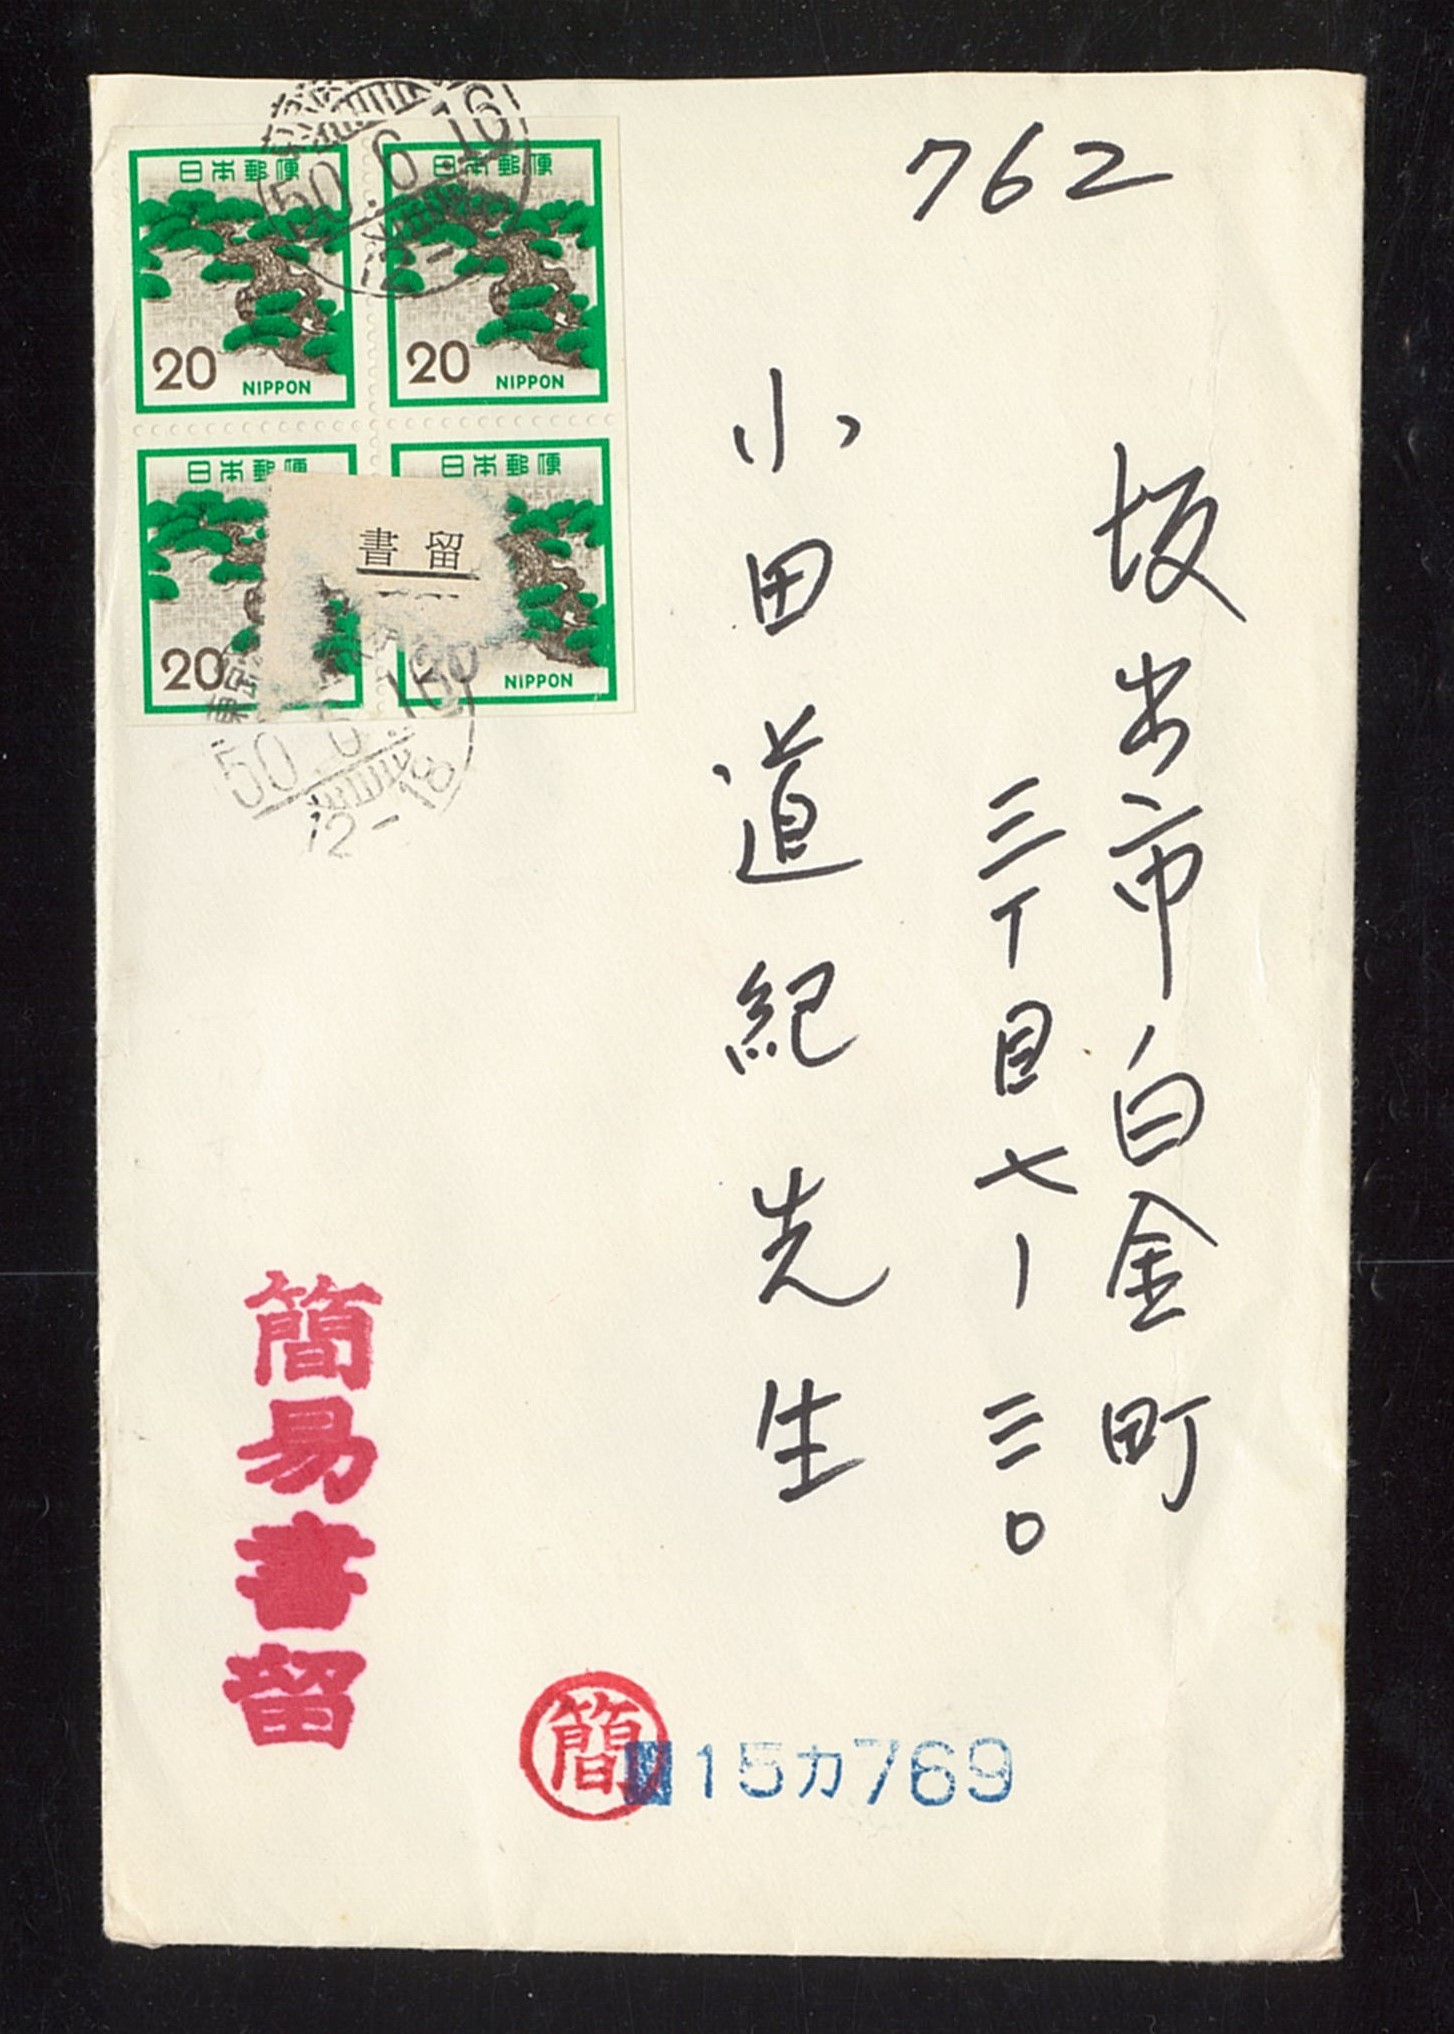 762
坂出市白金町
三丁目七ー三〇
小田道紀先生
日本郵便
20 NIPPON
日本郵便
20 NIPPON
日本郵便
20
日本郵便
20 NIPPON
50.6.16
12-
書留
50.6.16
12-18
簡易書留
簡
15カ769